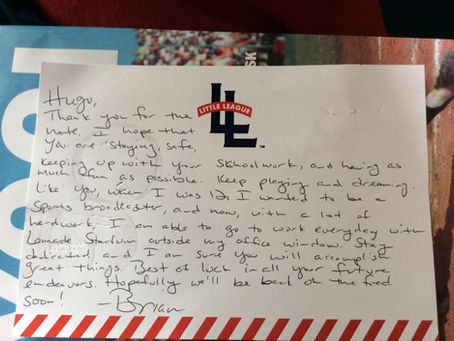 Hugo,
Thank you for the
note. I hope that
you are staying safe,
keeping up with your schoolwork, and having as
much fun as possible. Keep playing and dreaming.
Like you, when I was 12, I wanted to be a
sports broadcaster, and now, with a lot of
hardwork, I am able to go to work everyday with
Lamade Stadium outside my office window. Stay
dedicated and I am sure you will accomplish
great things. Best of luck in all your future
endeavors. Hopefully we'll be back on the field
soon!
-Brian
LITTLE LEAGUE
LL
TM
SK